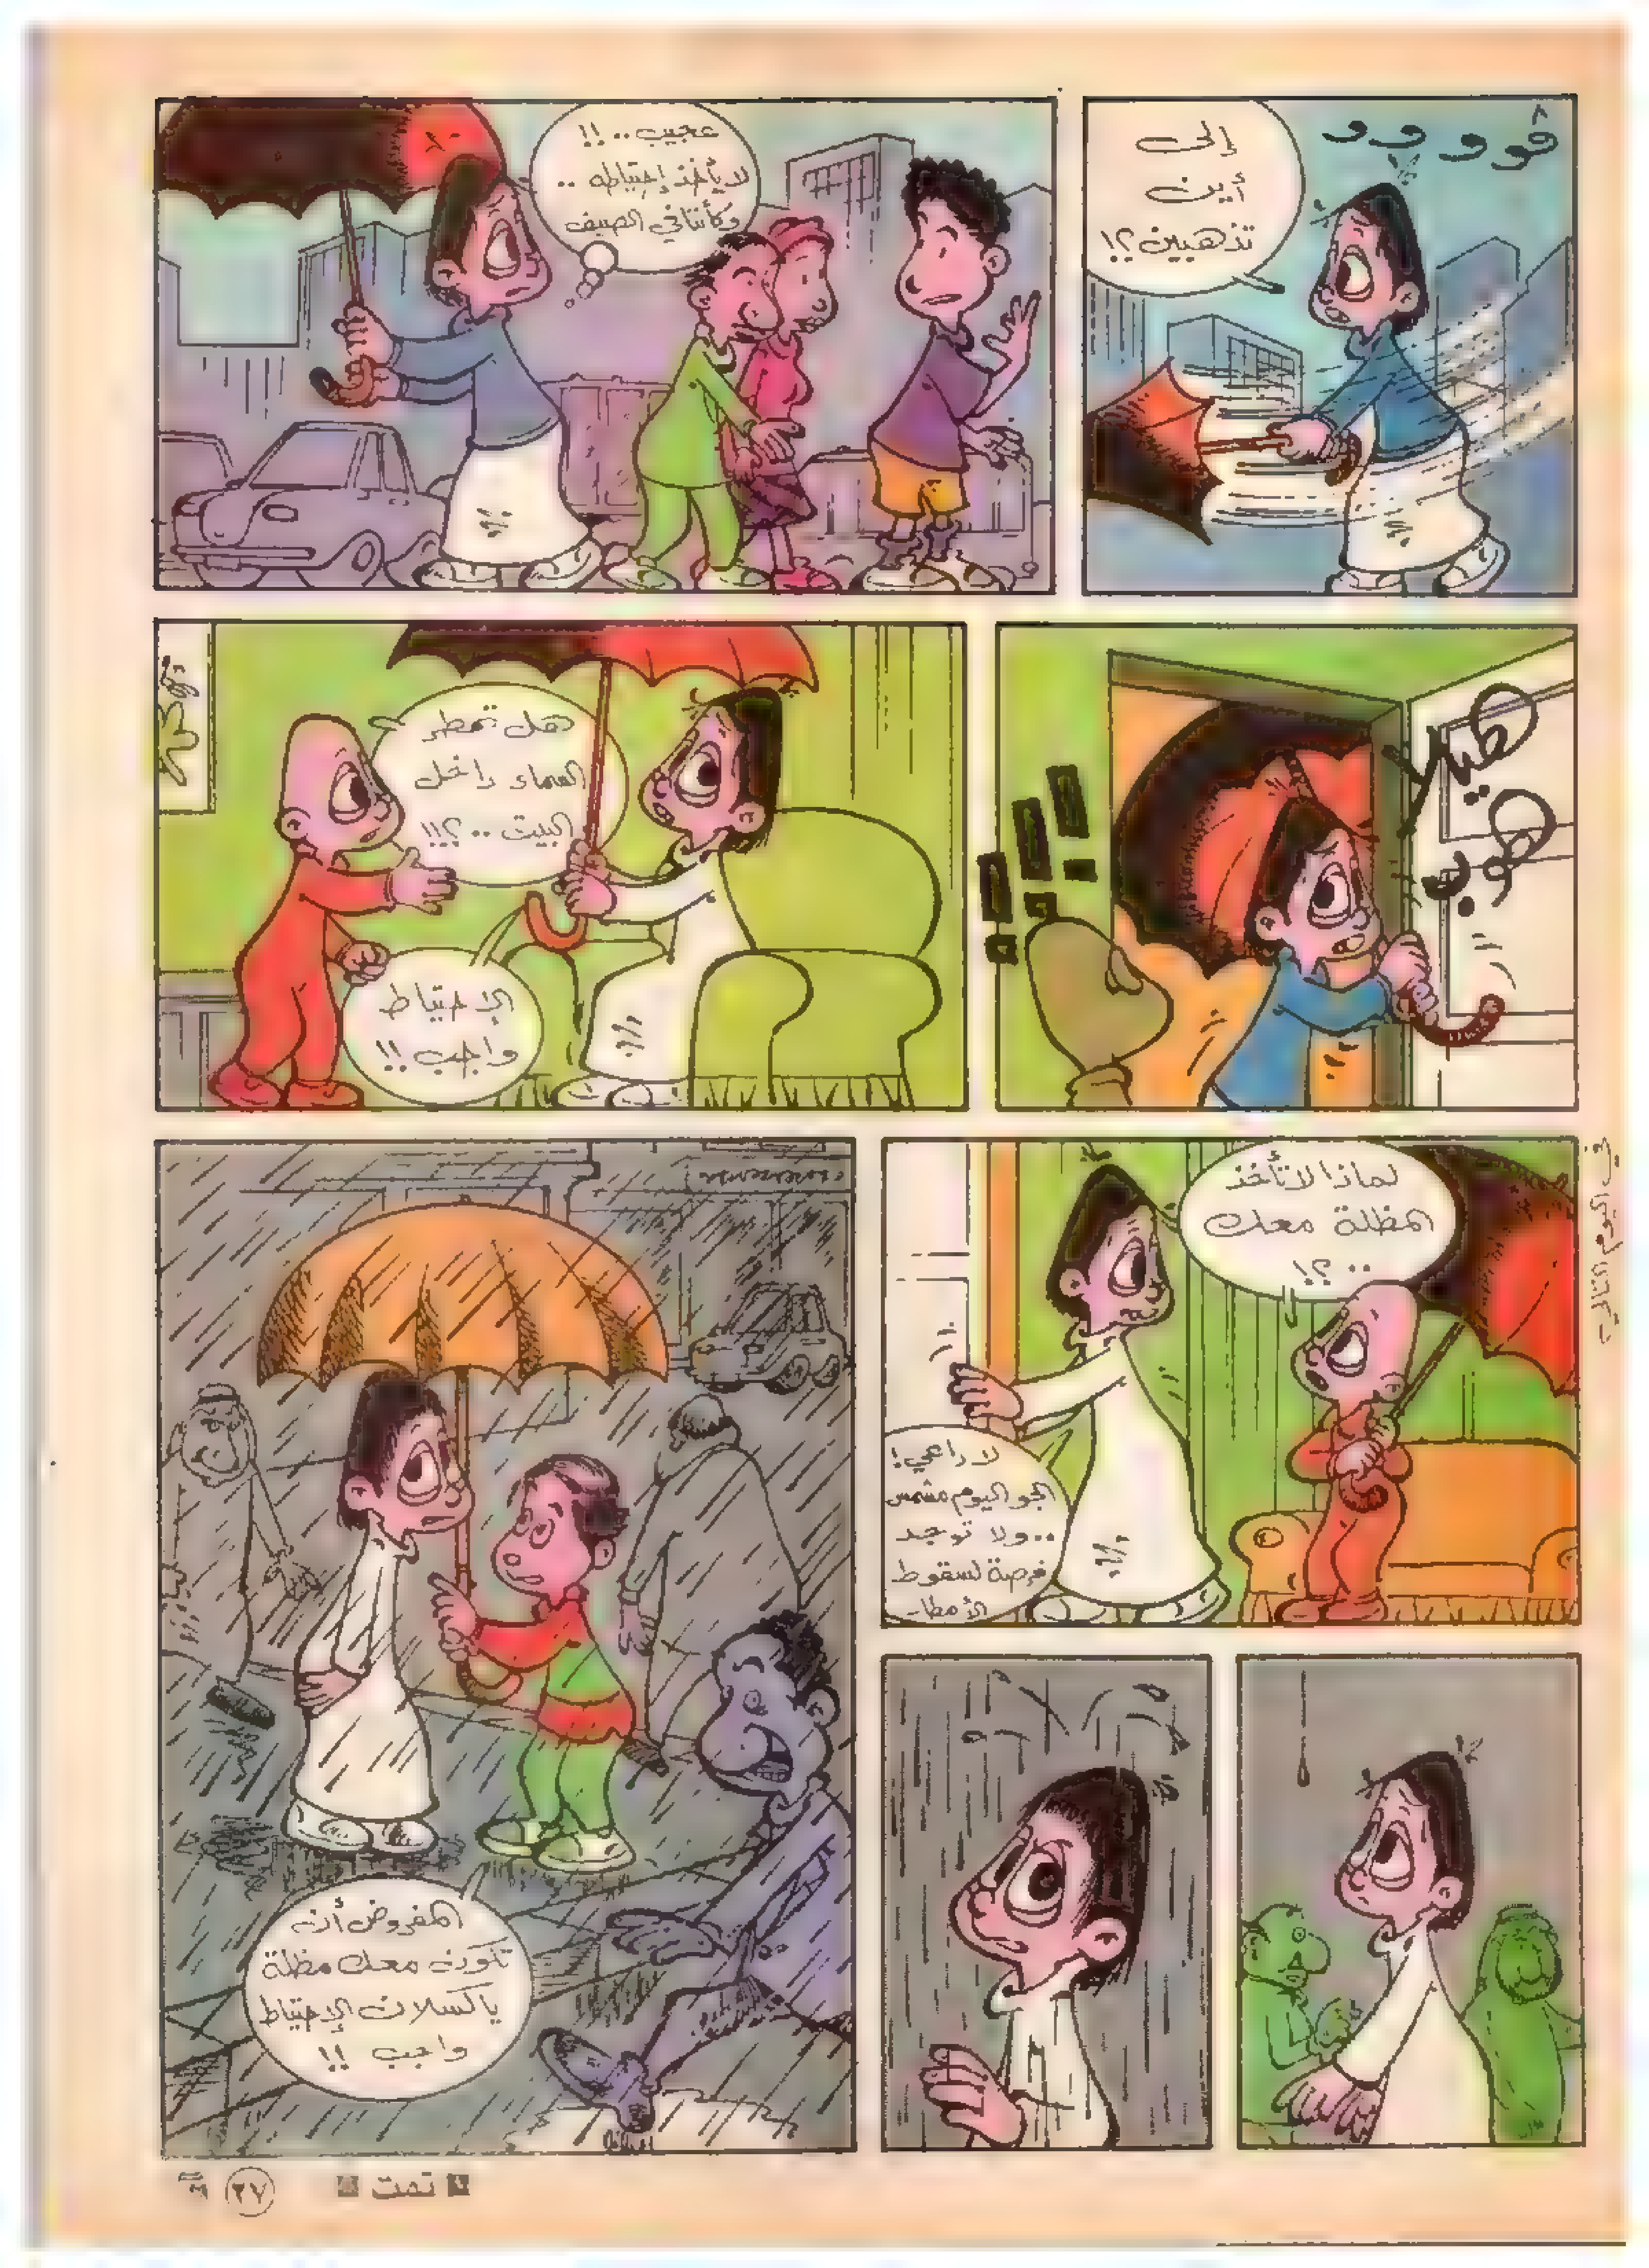 ڤوووو
إلى
أين
تذهبين؟!
عجيب..!!
لا يأخذ إحتياطه..
وكأننا في الصيف
هيا
هوب
!!!
هل تمطر
السماء داخل
البيت..؟!!
الإحتياط
واجب!!
في اليوم التالي
لماذا لا تأخذ
المظلة معك
..؟!
لا داعي!
الجو اليوم مشمس
..ولا توجد
فرصة لسقوط
الأمطار
المفروض أن
تكون معك مظلة
يا كسلان الإحتياط
واجب!!
تمت
٢٧